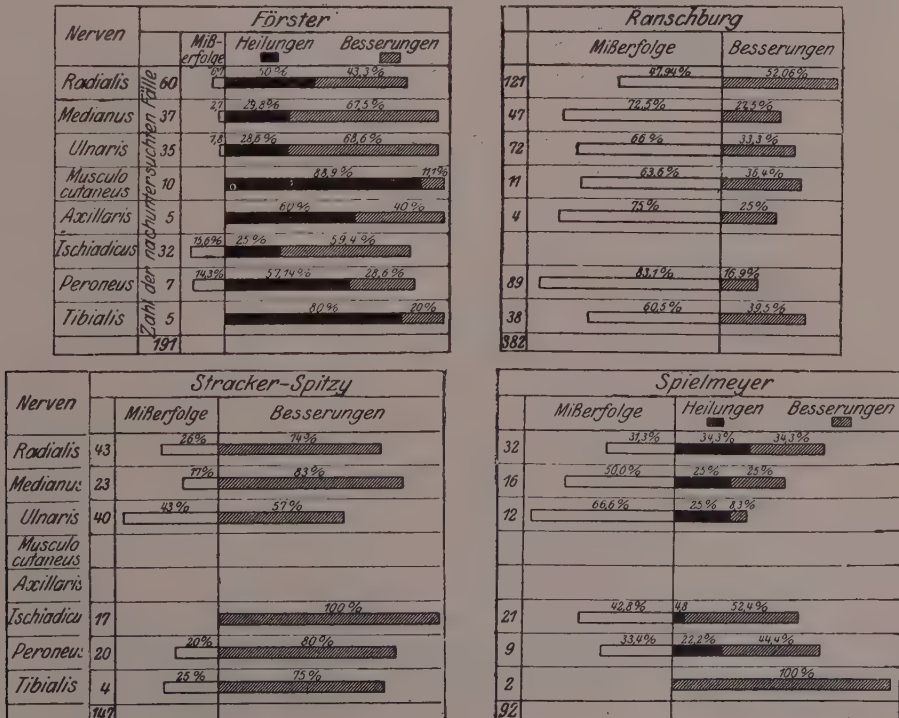 Förster
Nerven
Zahl der nachuntersuchten Fälle
Miß-erfolge Heilungen Besserungen
Radialis 60 6,7 50% 43,3%
Medianus 37 2,7 29,8% 67,5%
Ulnaris 35 28,6% 68,6%
Musculo
cutaneus 10 0 88,9% 11,1%
Axillaris 5 60% 40%
Ischiadicus 32 15,6% 25% 59,4%
Peroneus 7 14,3% 57,14% 28,6%
Tibialis 5 80% 20%
191
Ranschburg
Mißerfolge Besserungen
121 47,94% 52,06%
47 72,5% 22,5%
72 66% 33,3%
11 63,6% 36,4%
4 75% 25%
89 83,1% 16,9%
38 60,5% 39,5%
382
Stracker-Spitzy
Nerven
Mißerfolge Besserungen
Radialis 43 26% 74%
Medianus 23 17% 83%
Ulnaris 40 43% 57%
Musculo
cutaneus
Axillaris
Ischiadicu 17 100%
Peroneu: 20 20% 80%
Tibialis 4 25% 75%
147
Spielmeyer
Mißerfolge Heilungen Besserungen
32 31,3% 34,3% 34,3%
16 50,0% 25% 25%
12 66,6% 25% 8,3%
21 42,8% 4,8 52,4%
9 33,4% 22,2% 44,4%
2 100%
92